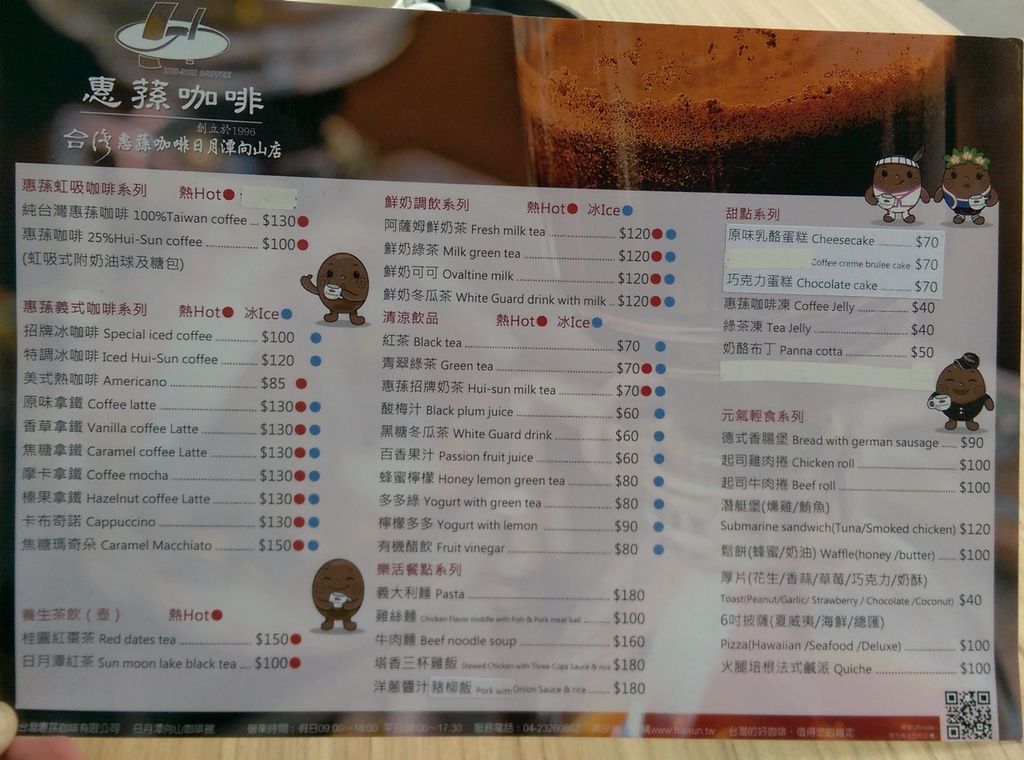 HUI-SUN COFFEE
惠蓀咖啡
創立於1996
台灣惠蓀咖啡日月潭向山店
惠蓀虹吸咖啡系列 熱Hot
純台灣惠蓀咖啡 100%Taiwan coffee ... $130
惠蓀咖啡 25%Hui-Sun coffee ... $100
(虹吸式附奶油球及糖包)
惠蓀義式咖啡系列 熱Hot 冰Ice
招牌冰咖啡 Special iced coffee $100
特調冰咖啡 Iced Hui-Sun coffee $120
美式熱咖啡 Americano $85
原味拿鐵 Coffee latte $130
香草拿鐵 Vanilla coffee Latte $130
焦糖拿鐵 Caramel coffee Latte $130
摩卡拿鐵 Coffee mocha $130
榛果拿鐵 Hazelnut coffee Latte $130
卡布奇諾 Cappuccino $130
焦糖瑪奇朵 Caramel Macchiato $150
養生茶飲（壺） 熱Hot
桂圓紅棗茶 Red dates tea $150
日月潭紅茶 Sun moon lake black tea $100
鮮奶調飲系列 熱Hot 冰Ice
阿薩姆鮮奶茶 Fresh milk tea $120
鮮奶綠茶 Milk green tea $120
鮮奶可可 Ovaltine milk $120
鮮奶冬瓜茶 White Guard drink with milk $120
清涼飲品 熱Hot 冰Ice
紅茶 Black tea $70
青翠綠茶 Green tea $70
惠蓀招牌奶茶 Hui-sun milk tea $70
酸梅汁 Black plum juice $60
黑糖冬瓜茶 White Guard drink $60
百香果汁 Passion fruit juice $60
蜂蜜檸檬 Honey lemon green tea $80
多多綠 Yogurt with green tea $80
檸檬多多 Yogurt with lemon $90
有機醋飲 Fruit vinegar $80
樂活餐點系列
義大利麵 Pasta $180
雞絲麵 Chicken Flavor noddle with Fish & Pork meat ball $100
牛肉麵 Beef noodle soup $160
塔香三杯雞飯 Stewed Chicken with Three Cups Sauce & rice $180
洋蔥醬汁豬柳飯 Pork with Onion Sauce & rice $180
甜點系列
原味乳酪蛋糕 Cheesecake $70
Coffee creme brulee cake $70
巧克力蛋糕 Chocolate cake $70
惠蓀咖啡凍 Coffee Jelly $40
綠茶凍 Tea Jelly $40
奶酪布丁 Panna cotta $50
元氣輕食系列
德式香腸堡 Bread with german sausage $90
起司雞肉捲 Chicken roll $100
起司牛肉捲 Beef roll $100
潛艇堡(燻雞/鮪魚)
Submarine sandwich(Tuna/Smoked chicken) $120
鬆餅(蜂蜜/奶油) Waffle(honey /butter) $100
厚片(花生/香蒜/草莓/巧克力/奶酥)
Toast(Peanut/Garlic/ Strawberry / Chocolate /Coconut) $40
6吋披薩(夏威夷/海鮮/總匯)
Pizza(Hawaiian /Seafood /Deluxe) $100
火腿培根法式鹹派 Quiche $100
台灣惠蓀咖啡有限公司 日月潭向山咖啡館 營業時間：假日09:00~18:00 平日09:00~17:30 服務電話：04-23260862 www.huisun.tw 台灣的好咖啡，值得您的肯定